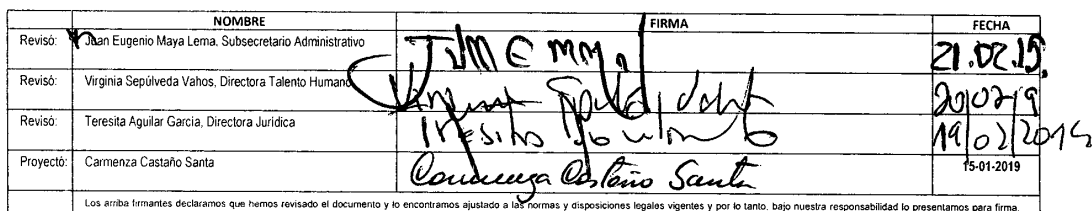 NOMBRE FIRMA FECHA
Revisó: Juan Eugenio Maya Lema, Subsecretario Administrativo 21.02.19.
Revisó: Virginia Sepúlveda Vahos, Directora Talento Humano 20/02/19
Revisó: Teresita Aguilar Garcia, Directora Jurídica Teresita 19/02/2019
Proyectó: Carmenza Castaño Santa Carmenza Castaño Santa 15-01-2019
Los arriba firmantes declaramos que hemos revisado el documento y lo encontramos ajustado a las normas y disposiciones legales vigentes y por lo tanto, bajo nuestra responsabilidad lo presentamos para firma.